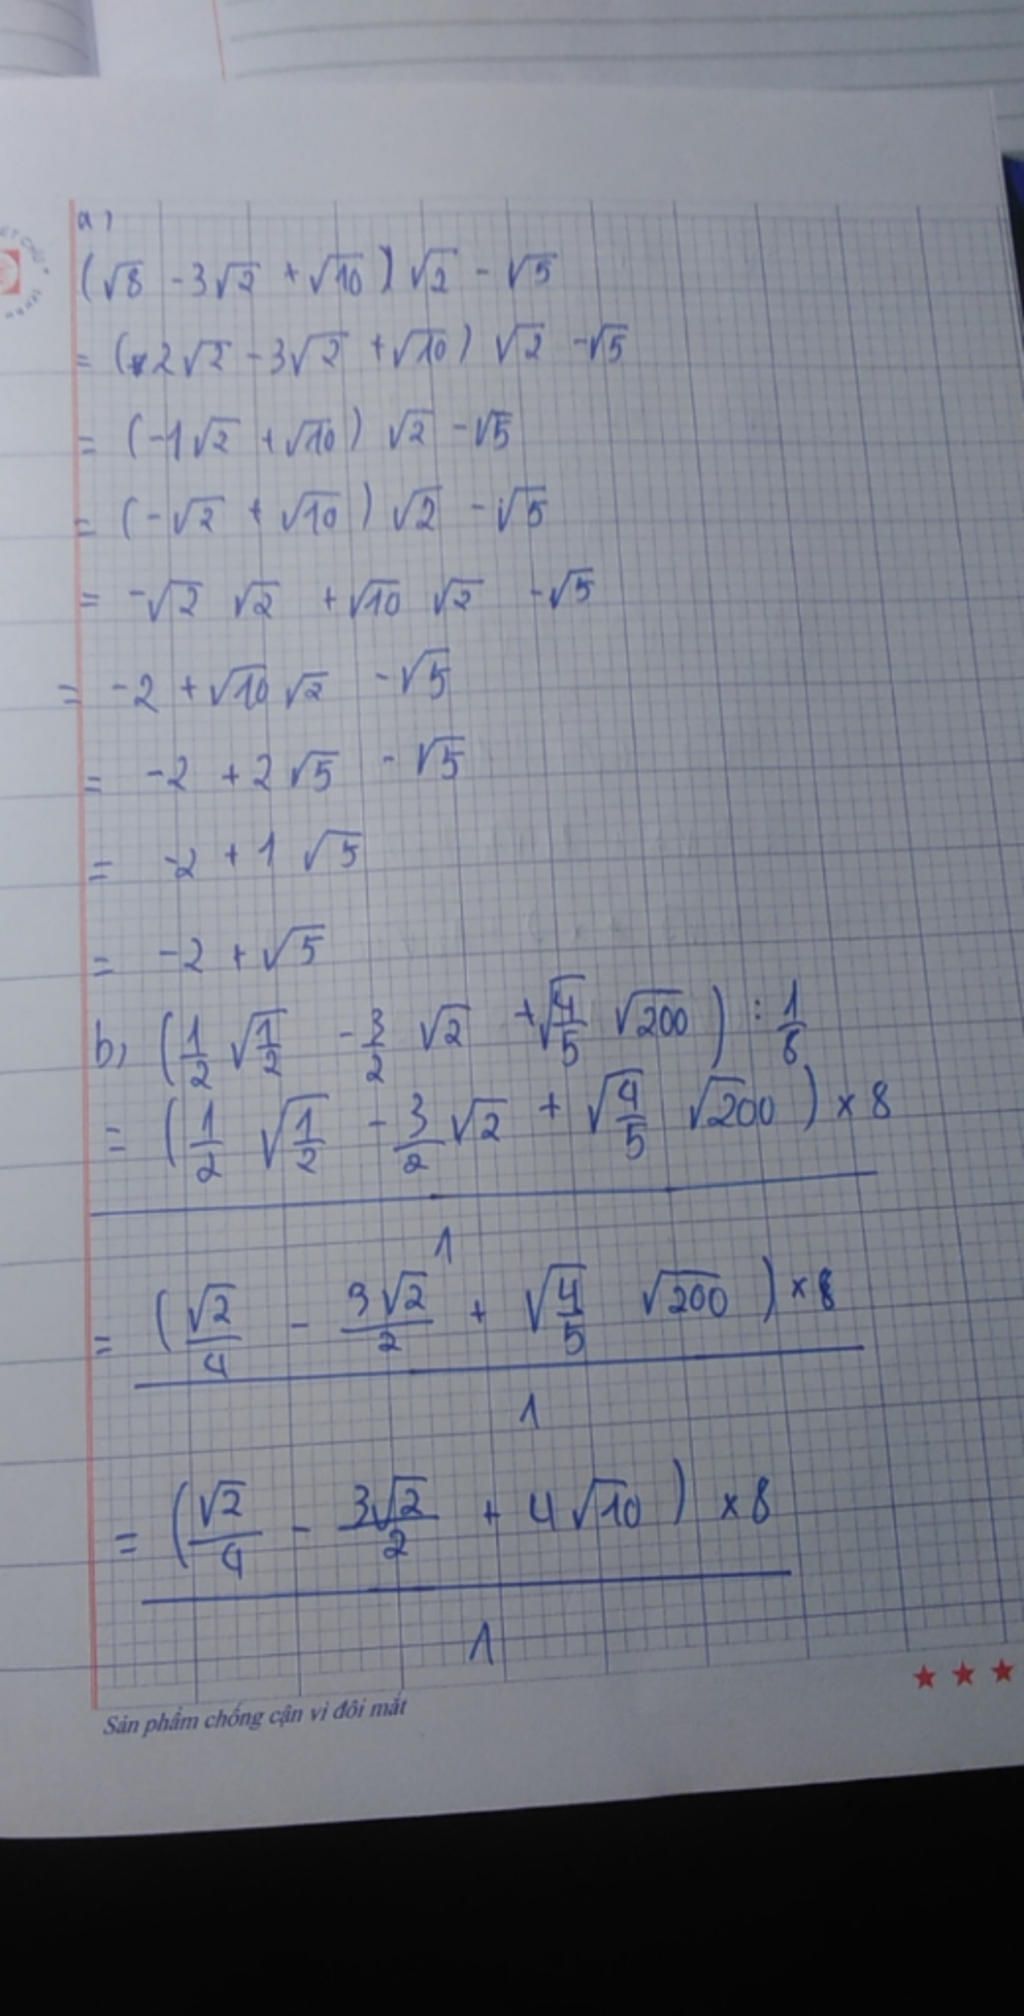 a,
(√8 - 3√2 + √10) √2 - √5
= (2√2 - 3√2 + √10) √2 - √5
= (-1√2 + √10) √2 - √5
= (-√2 + √10) √2 - √5
= -√2 √2 + √10 √2 - √5
= -2 + √10 √2 - √5
= -2 + 2√5 - √5
= -2 + 1 √5
= -2 + √5
b, (1/2 √(1/2) - 3/2 √2 + √(4/5) √200) : 1/8
= (1/2 √(1/2) - 3/2 √2 + √(4/5) √200) × 8
1
= (√2/4 - 3√2/2 + √(4/5) √200) × 8
1
= (√2/4 - 3√2/2 + 4√10) × 8
1
Sản phẩm chống cận vì đôi mắt